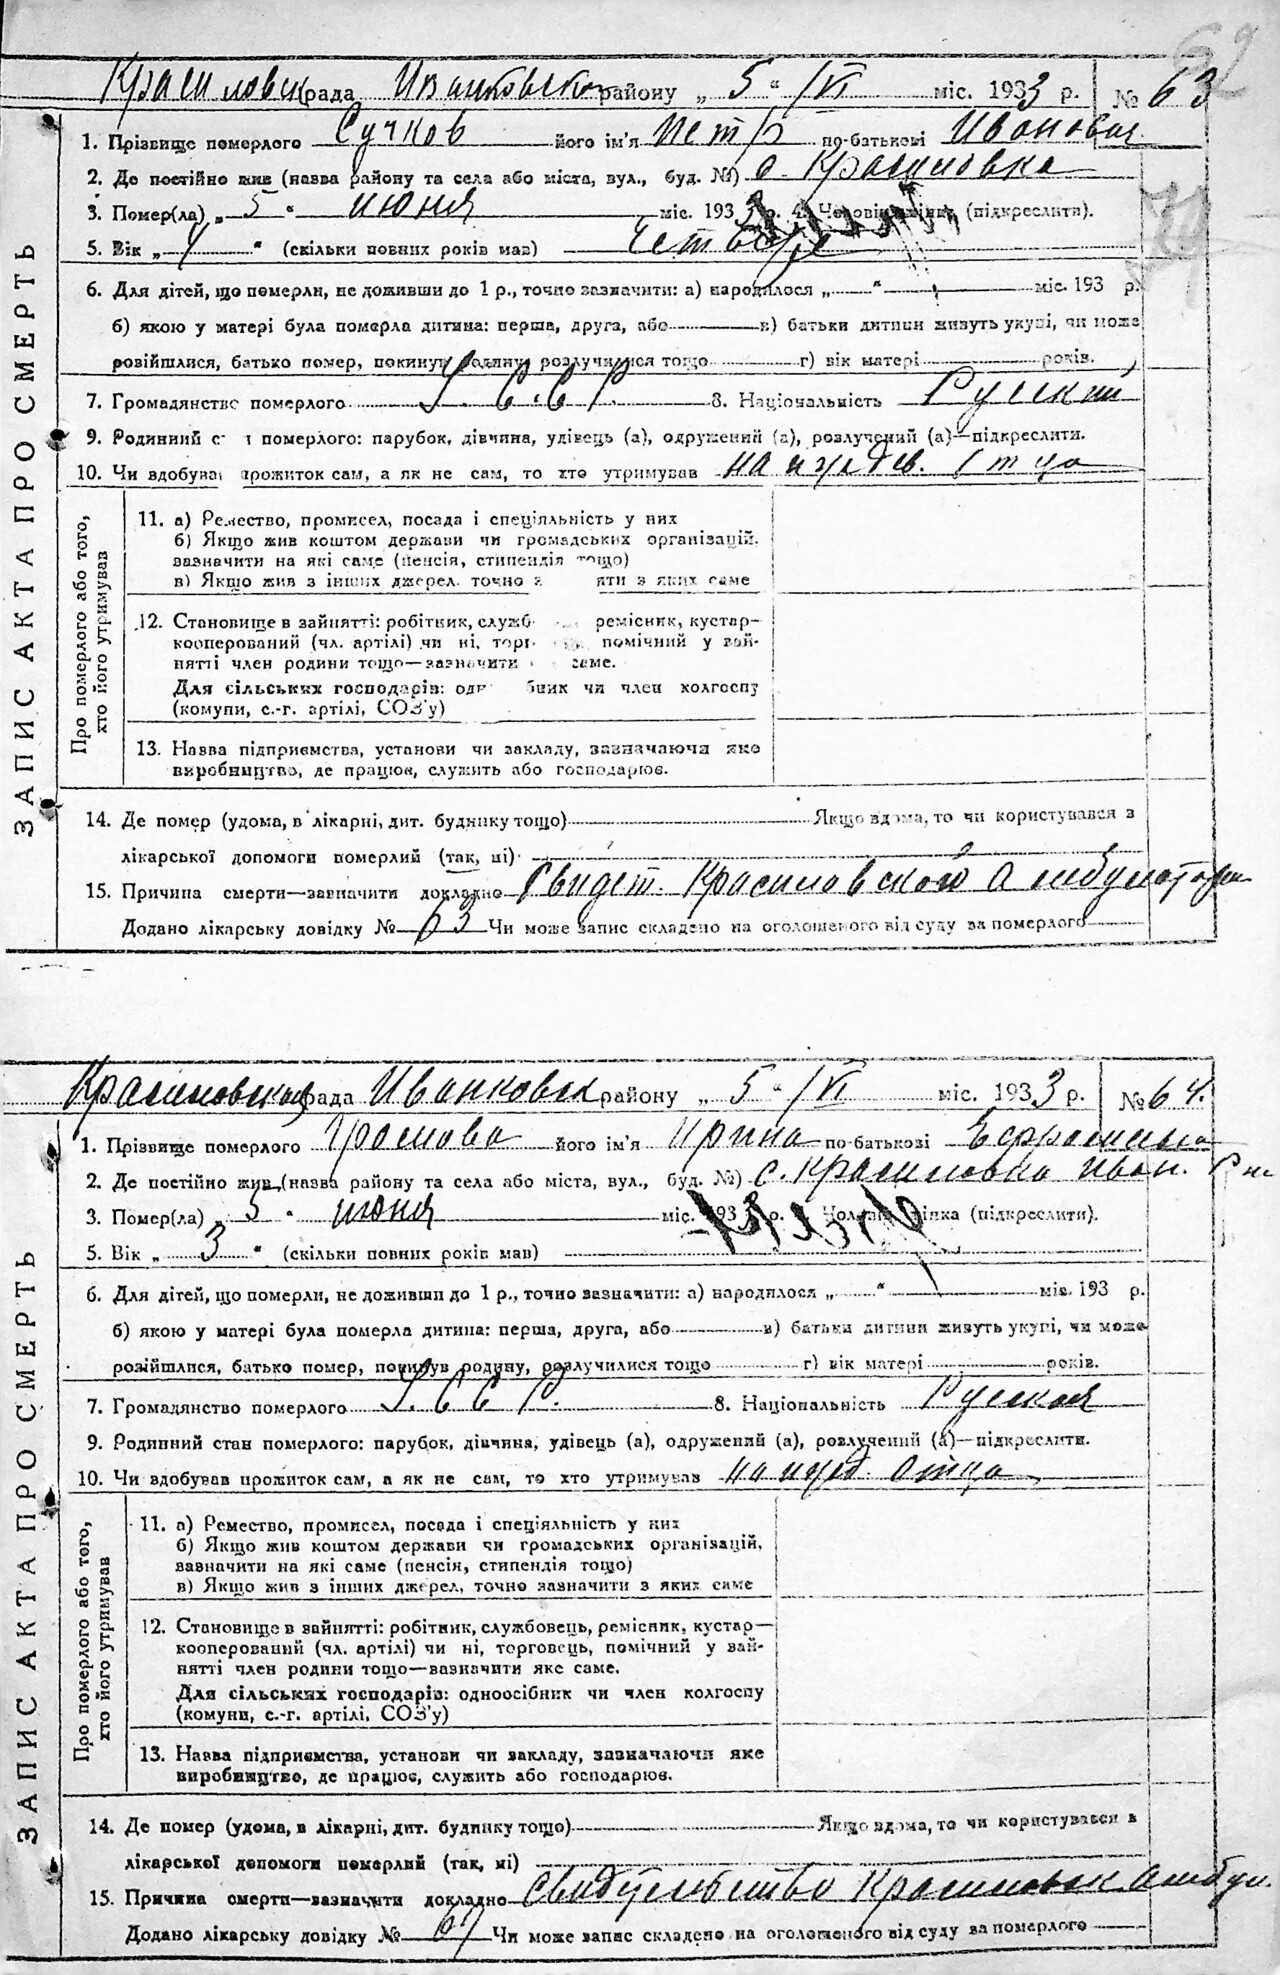 62
Красиловск рада Иванковско району „ 5 “ /VI міс. 1933 р. № 63
ЗАПИС АКТА ПРО СМЕРТЬ
1. Прізвище померлого Сучков його ім'я Петр по-батькові Иванович
2. Де постійно жив (назва району та села або міста, вул., буд. №) с. Красиловка
3. Помер(ла) „ 5 “ июня міс. 1933 р. 4. Чоловік, жінка (підкреслити).
5. Вік „ 4 “ (скільки повних років мав) четверо
6. Для дітей, що померли, не доживши до 1 р., точно зазначити: а) народилося „ “ міс. 193 р.
б) якою у матері була померла дитина: перша, друга, або в) батьки дитини живуть укупі, чи може
розійшлися, батько помер, покинув родину, розлучилися тощо г) вік матері років.
7. Громадянство померлого У. С.С.Р. 8. Національність Русский
9. Родинний с н померлого: парубок, дівчина, удівець (а), одружений (а), розлучений (а)—підкреслити.
10. Чи вдобува прожиток сам, а як не сам, то хто утримував на иждев. Отца
Про померлого або того,
хто його утримував
11. а) Ремество, промисел, посада і спеціяльність у них
б) Якщо жив коштом держави чи громадських організацій,
зазначити на які саме (пенсія, стипендія тощо)
в) Якщо жив з інших джерел, точно з яти з яких саме
12. Становище в зайнятті: робітник, служб ремісник, кустар—
кооперований (чл. артілі) чи ні, торг помічний у зай-
нятті член родини тощо—зазначити саме.
Для сільських господарів: од бник чи член колгоспу
(комуни, с.-г. артілі, СОЗ'у)
13. Назва підприємства, установи чи закладу, зазначаючи яке
виробництво, де працює, служить або господарює.
14. Де помер (удома, в лікарні, дит. будинку тощо) Якщо вдома, то чи користувався з
лікарської допомоги померлий (так, ні)
15. Причина смерти—зазначити докладно Свидет. Красиловской Амбулатории
Додано лікарську довідку № 63 Чи може запис складено на оголошеного від суду за померлого
Красиловская рада Иванковск району „ 5 “ /VI міс. 1933 р. № 64.
ЗАПИС АКТА ПРО СМЕРТЬ
1. Прізвище померлого Громова його ім'я Ирина по-батькові
2. Де постійно жив (назва району та села або міста, вул., буд. №) с. Красиловка Иван. Р на
3. Помер(ла) 5 “ июня міс. 1933 р. Чоловік, жінка (підкреслити).
5. Вік „ 3 “ (скільки повних років мав)
6. Для дітей, що померли, не доживши до 1 р., точно зазначити: а) народилося „ “ міс. 193 р.
б) якою у матері була померла дитина: перша, друга, або в) батьки дитини живуть укупі, чи може
розійшлися, батько помер, покинув родину, розлучилися тощо г) вік матері років.
7. Громадянство померлого У. С С Р. 8. Національність Русская
9. Родинний стан померлого: парубок, дівчина, удівець (а), одружений (а), розлучений (а)—підкреслити.
10. Чи вдобував прожиток сам, а як не сам, то хто утримував на ижд. отца
Про померлого або того,
хто його утримував
11. а) Ремество, промисел, посада і спеціяльність у них
б) Якщо жив коштом держави чи громадських організацій,
зазначити на які саме (пенсія, стипендія тощо)
в) Якщо жив з інших джерел, точно зазначити з яких саме
12. Становище в зайнятті: робітник, службовець, ремісник, кустар—
кооперований (чл. артілі) чи ні, торговець, помічний у зай-
нятті член родини тощо—зазначити яке саме.
Для сільських господарів: одноосібник чи член колгоспу
(комуни, с.-г. артілі, СОЗ'у)
13. Назва підприємства, установи чи закладу, зазначаючи яке
виробництво, де працює, служить або господарює.
14. Де помер (удома, в лікарні, дит. будинку тощо) Якщо вдома, то чи користувався з
лікарської допомоги померлий (так, ні)
15. Причина смерти—зазначити докладно Свидетельство Красиловск амбул.
Додано лікарську довідку № 64 Чи може запис складено на оголошеного від суду за померлого